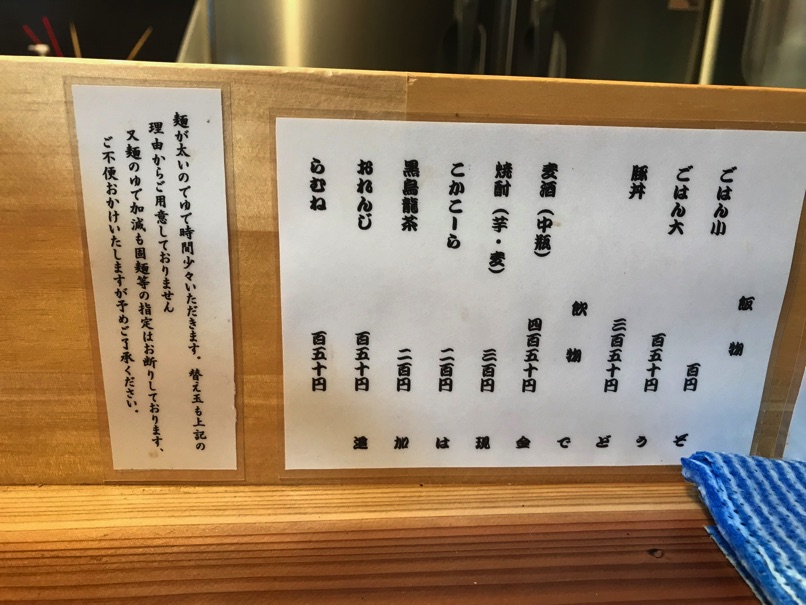 飯物
ごはん小 百円
ごはん大 百五十円
豚丼 三百五十円
飲物
麦酒（中瓶） 四百五十円
焼酎（芋・麦） 三百円
こかこーら 二百円
黒烏龍茶 二百円
おれんじ 百五十円
らむね 百五十円
追加は現金でどうぞ
麺が太いのでゆで時間少々いただきます。替え玉も上記の
理由からご用意しておりません
又麺のゆで加減も固麺等の指定はお断りしております、
ご不便おかけいたしますが予めご了承ください。